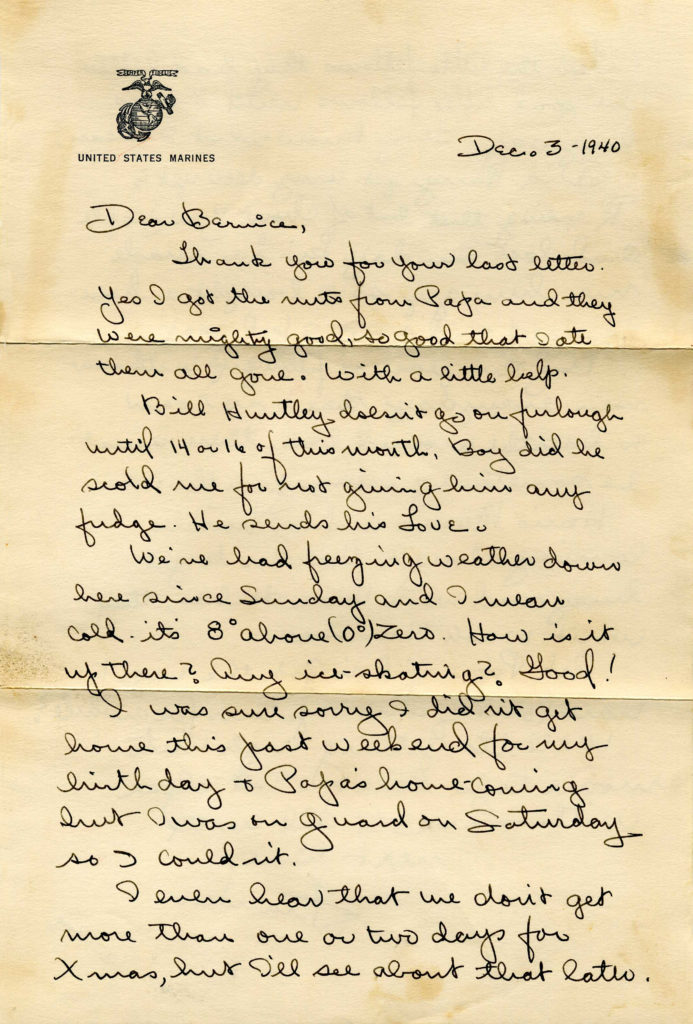 UNITED STATES MARINES
Dec. 3 - 1940
Dear Bernice,
Thank you for your last letter.
Yes I got the nuts from Papa and they
were mighty good, so good that I ate
them all gone. With a little help.
Bill Huntley doesn't go on furlough
until 14 or 16 of this month. Boy did he
scold me for not giving him any
fudge. He sends his Love.
We've had freezing weather down
here since Sunday and I mean
cold. it's 8° above (0°) Zero. How is it
up there? Any ice-skating? Good!
I was sure sorry I didn't get
home this past weekend for my
birthday & Papa's home-coming
but I was on guard on Saturday
so I couldn't.
I even hear that we don't get
more than one or two days for
Xmas, but I'll see about that later.